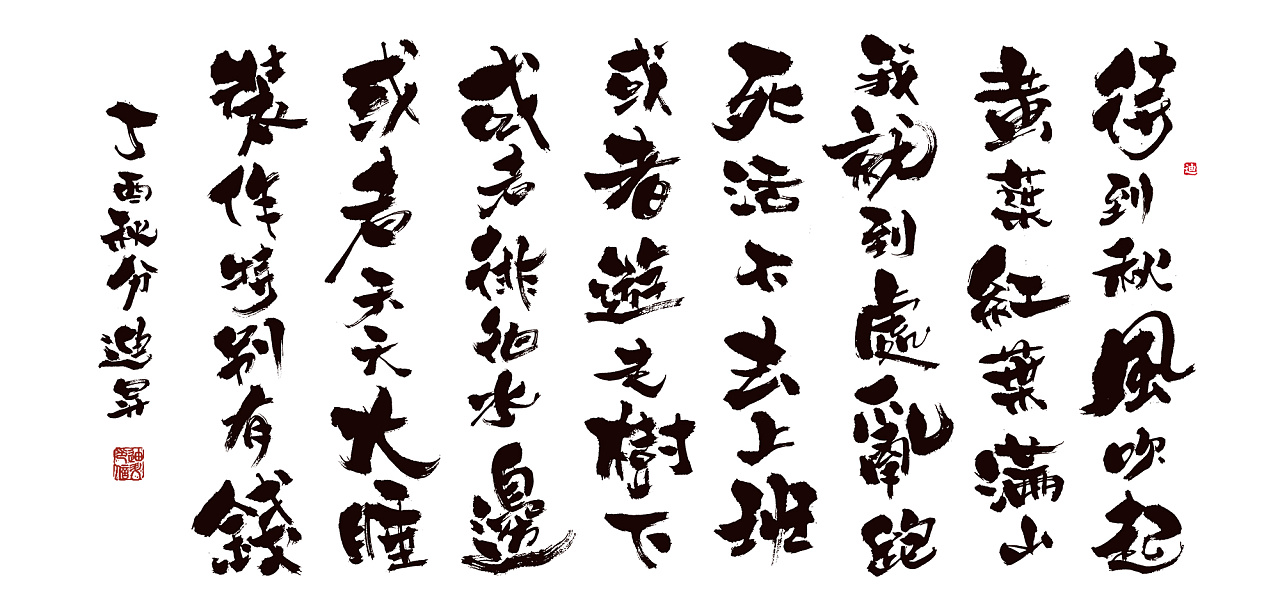 待到秋風吹起
黃葉紅葉滿山
我就到處亂跑
死活不去上班
或者遊走樹下
或者徘徊水邊
或者天天大睡
裝作特別有錢
丁酉秋分迪昇